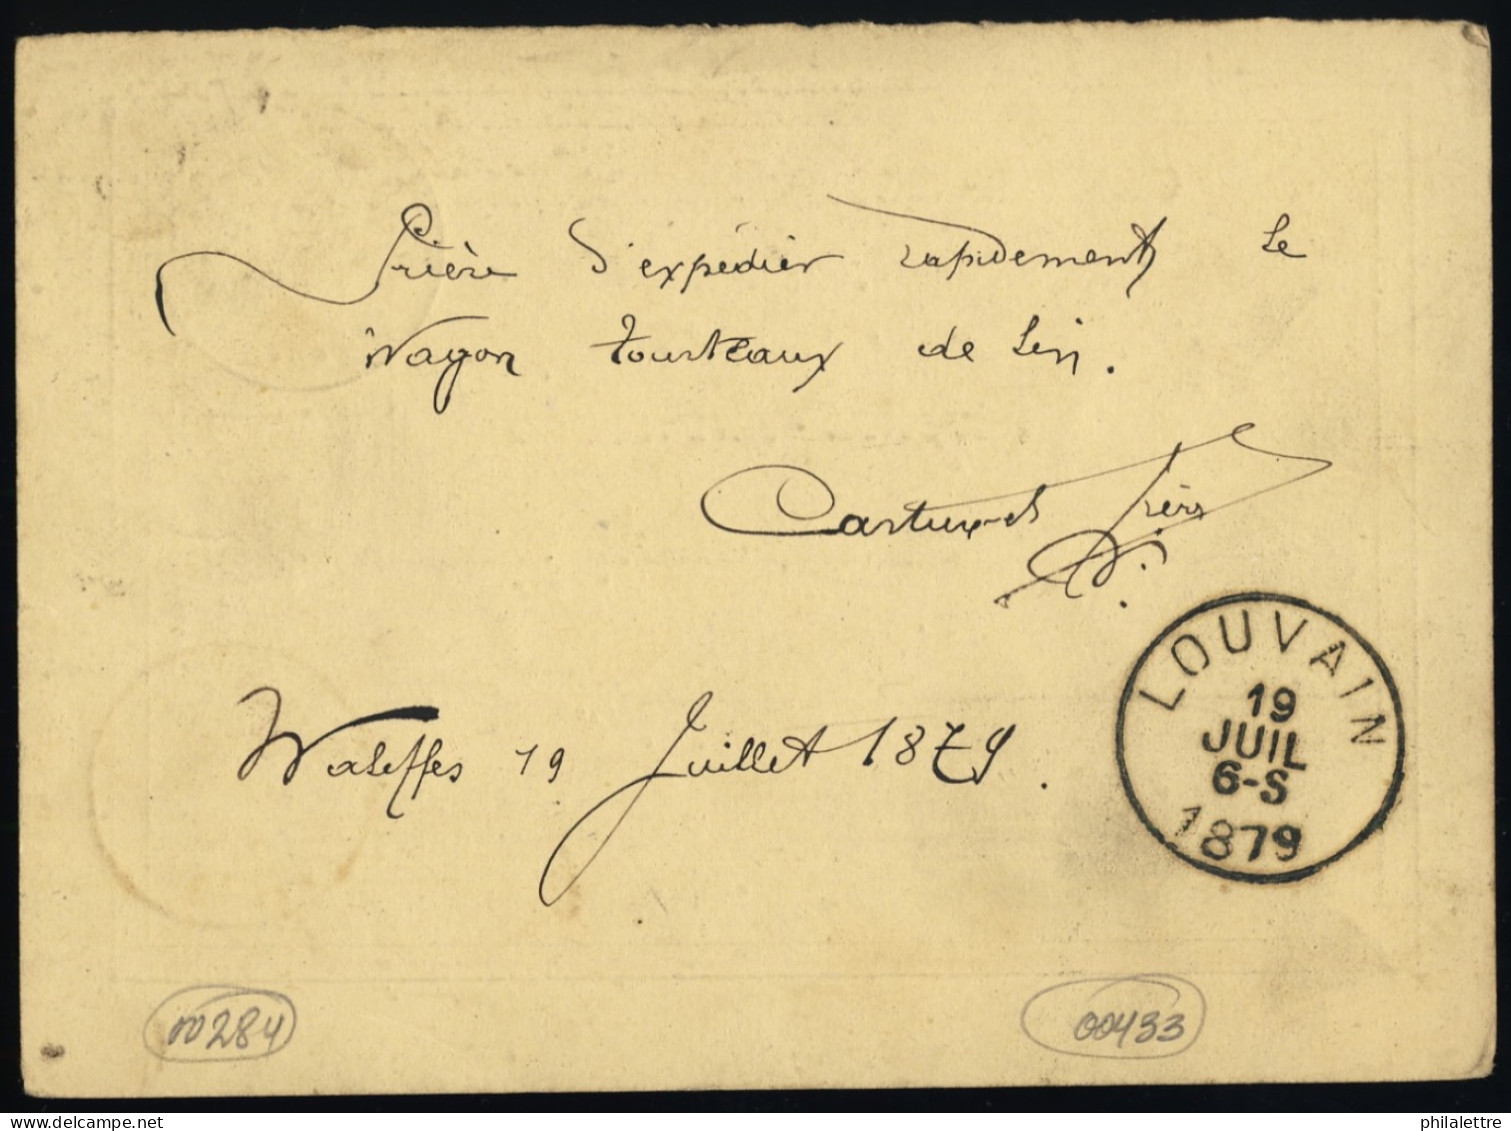 Prière d'expédier rapidement le
Wagon tourteaux de lin.
frères
LOUVAIN
19
JUIL
6-S
1879
Waleffes 19 Juillet 1879.
00284
00433
delcampe.net
philalettre